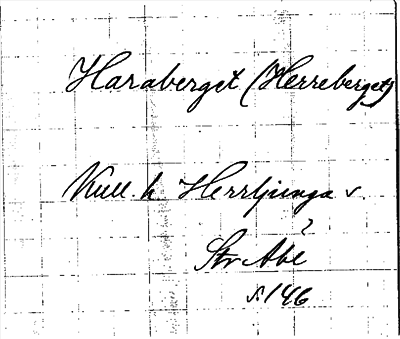 Haraberget (Herreberget)
Kull. h Herrljunga s.
?
Str Abl
s. 146